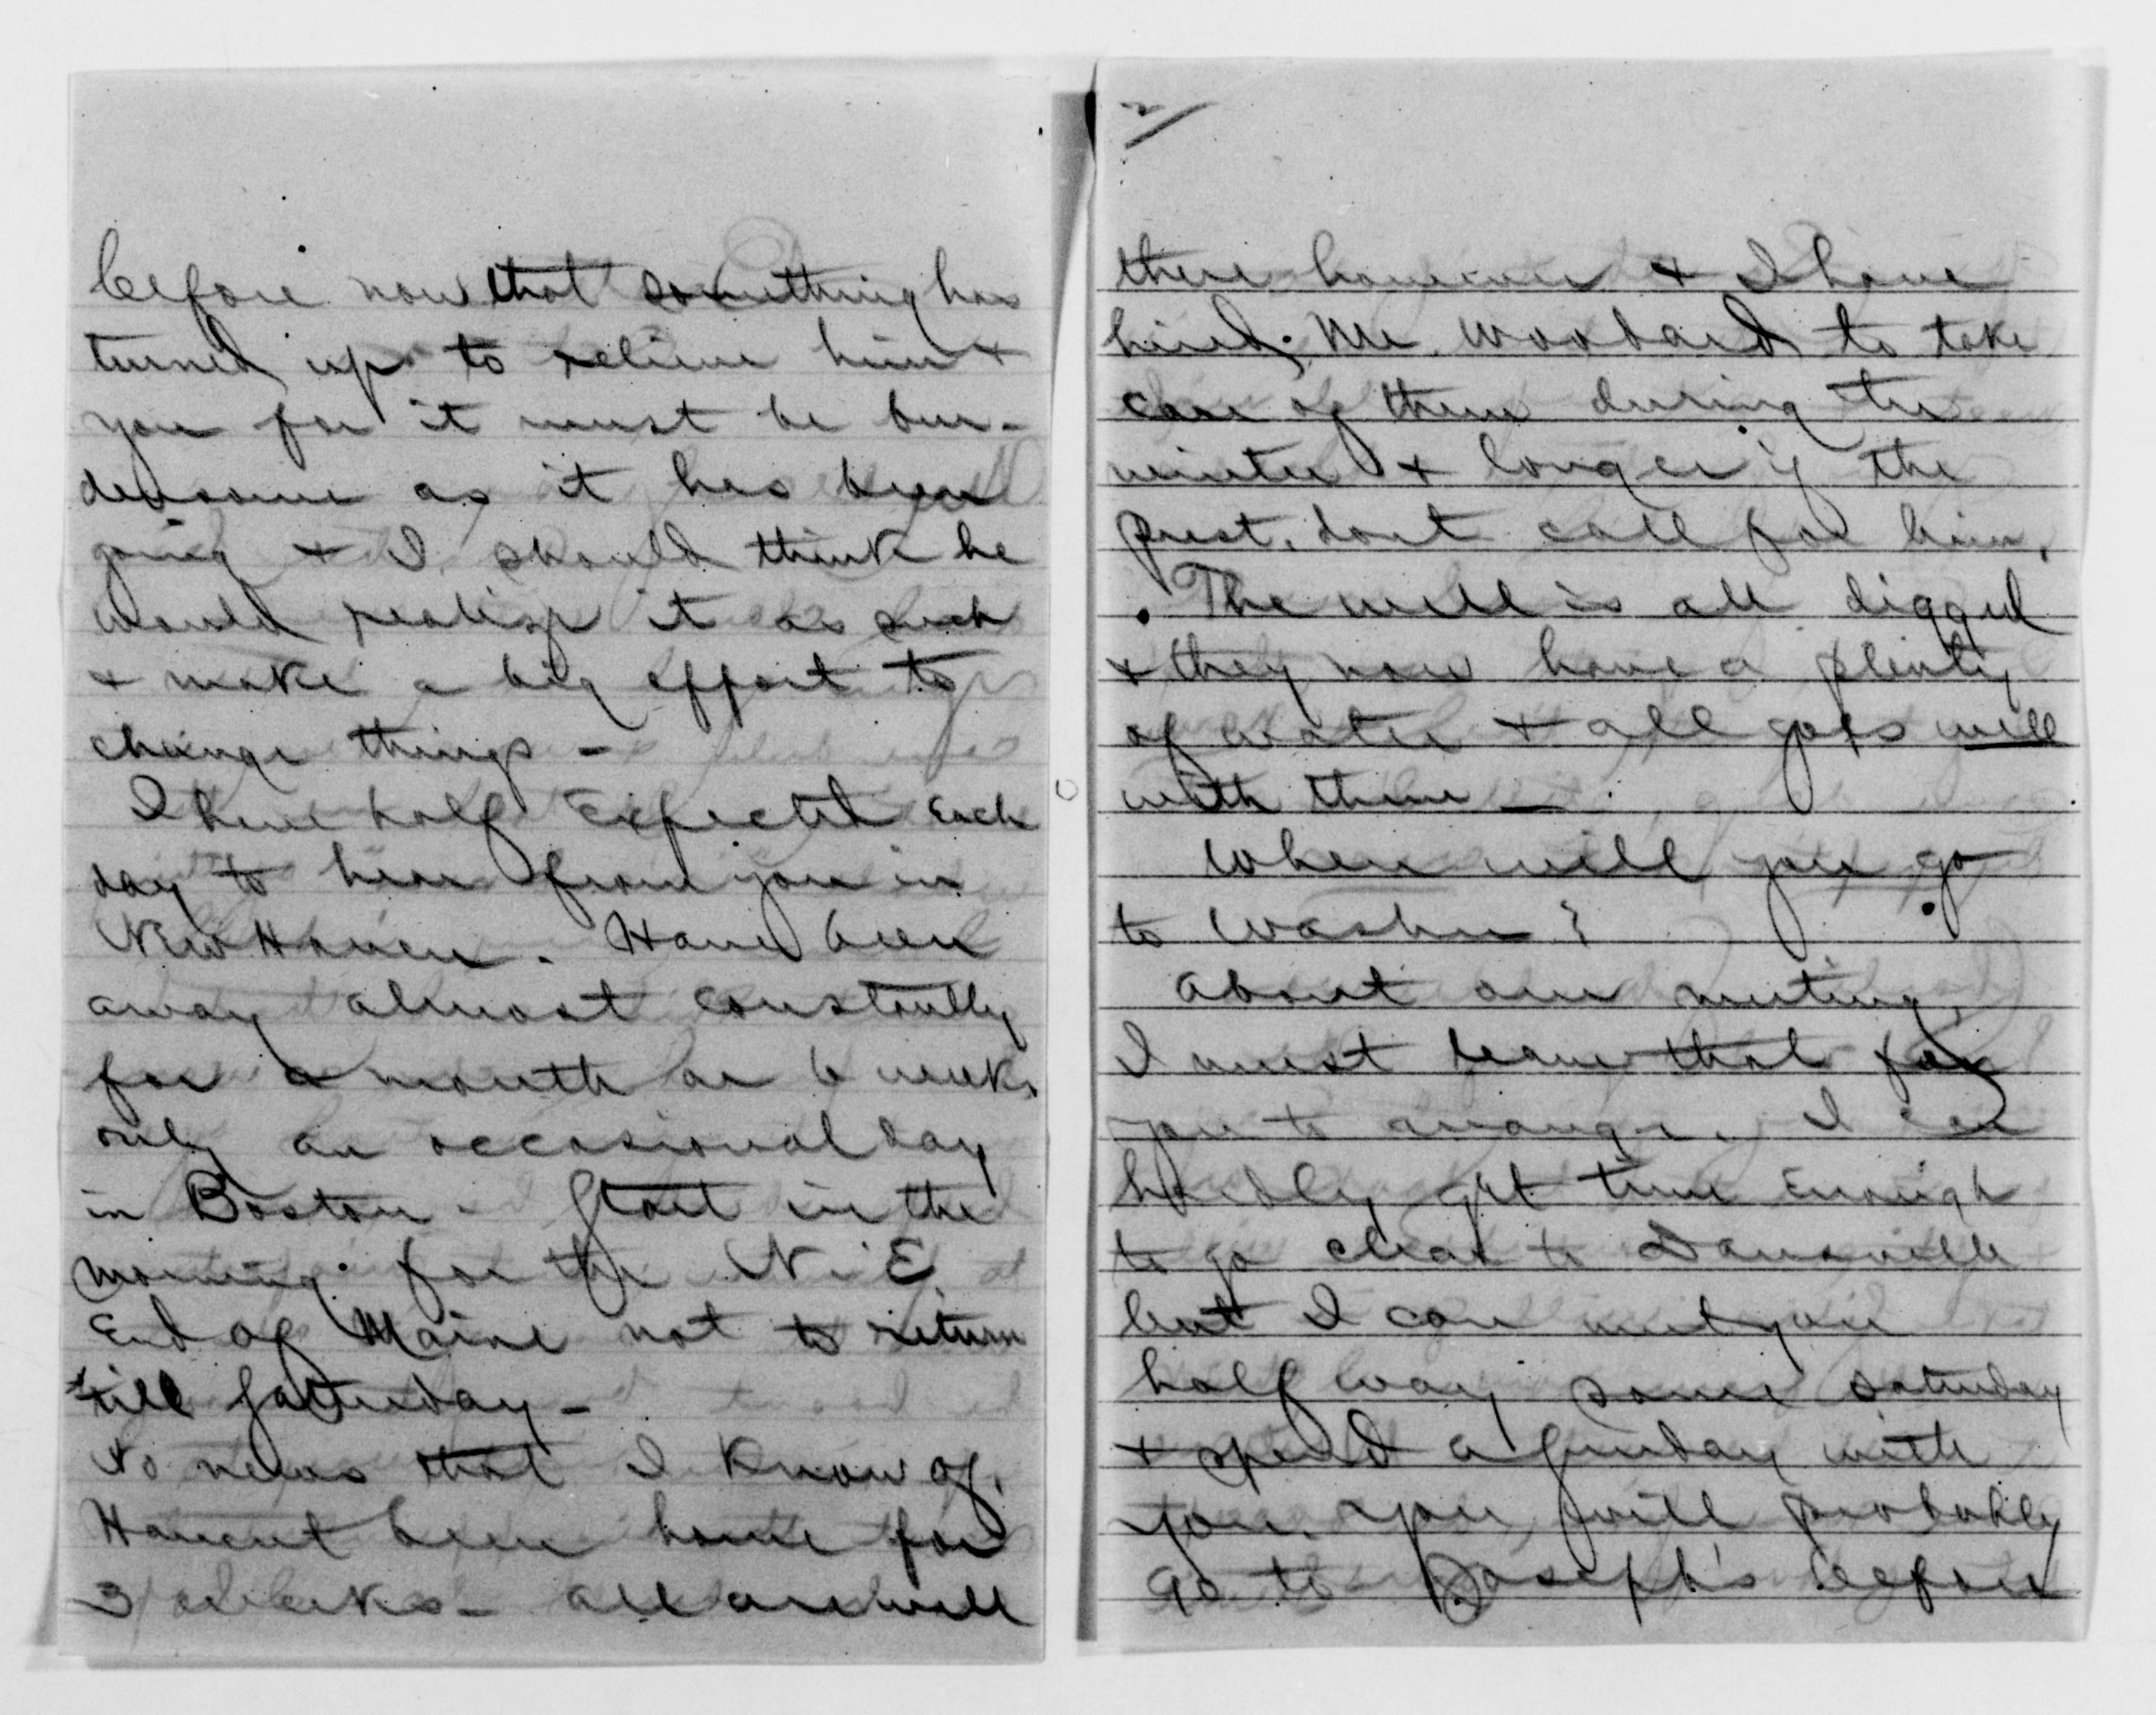 before now that something has
turned up to relieve him &
you for it must be bur-
densome as it has been
going & I should think he
would realize it as such
& make a big effort to
change things -
I have half expected each
day to hear from you in
New Haven. Have been
away almost constantly
for a month or 6 weeks,
only an occasional day
in Boston - Start in the
morning for the N. E.
End of Maine not to return
till Saturday -
No news that I know of.
Havent been home for
3 weeks - all are well
2
there however & I have
hired Mr. Woodard to take
care of them during the
winter & longer if the
Prest. dont call for him.
The well is all digged
& they now have a plenty
of water & all goes well
with them -
When will you go
to Washn?
About our meeting,
I must leave that for
you to arrange. I can
hardly get time enough
to go clear to Dansville
but I can meet you
half way some Saturday
& spend a Sunday with
you. You will probably
go to Joseph's before